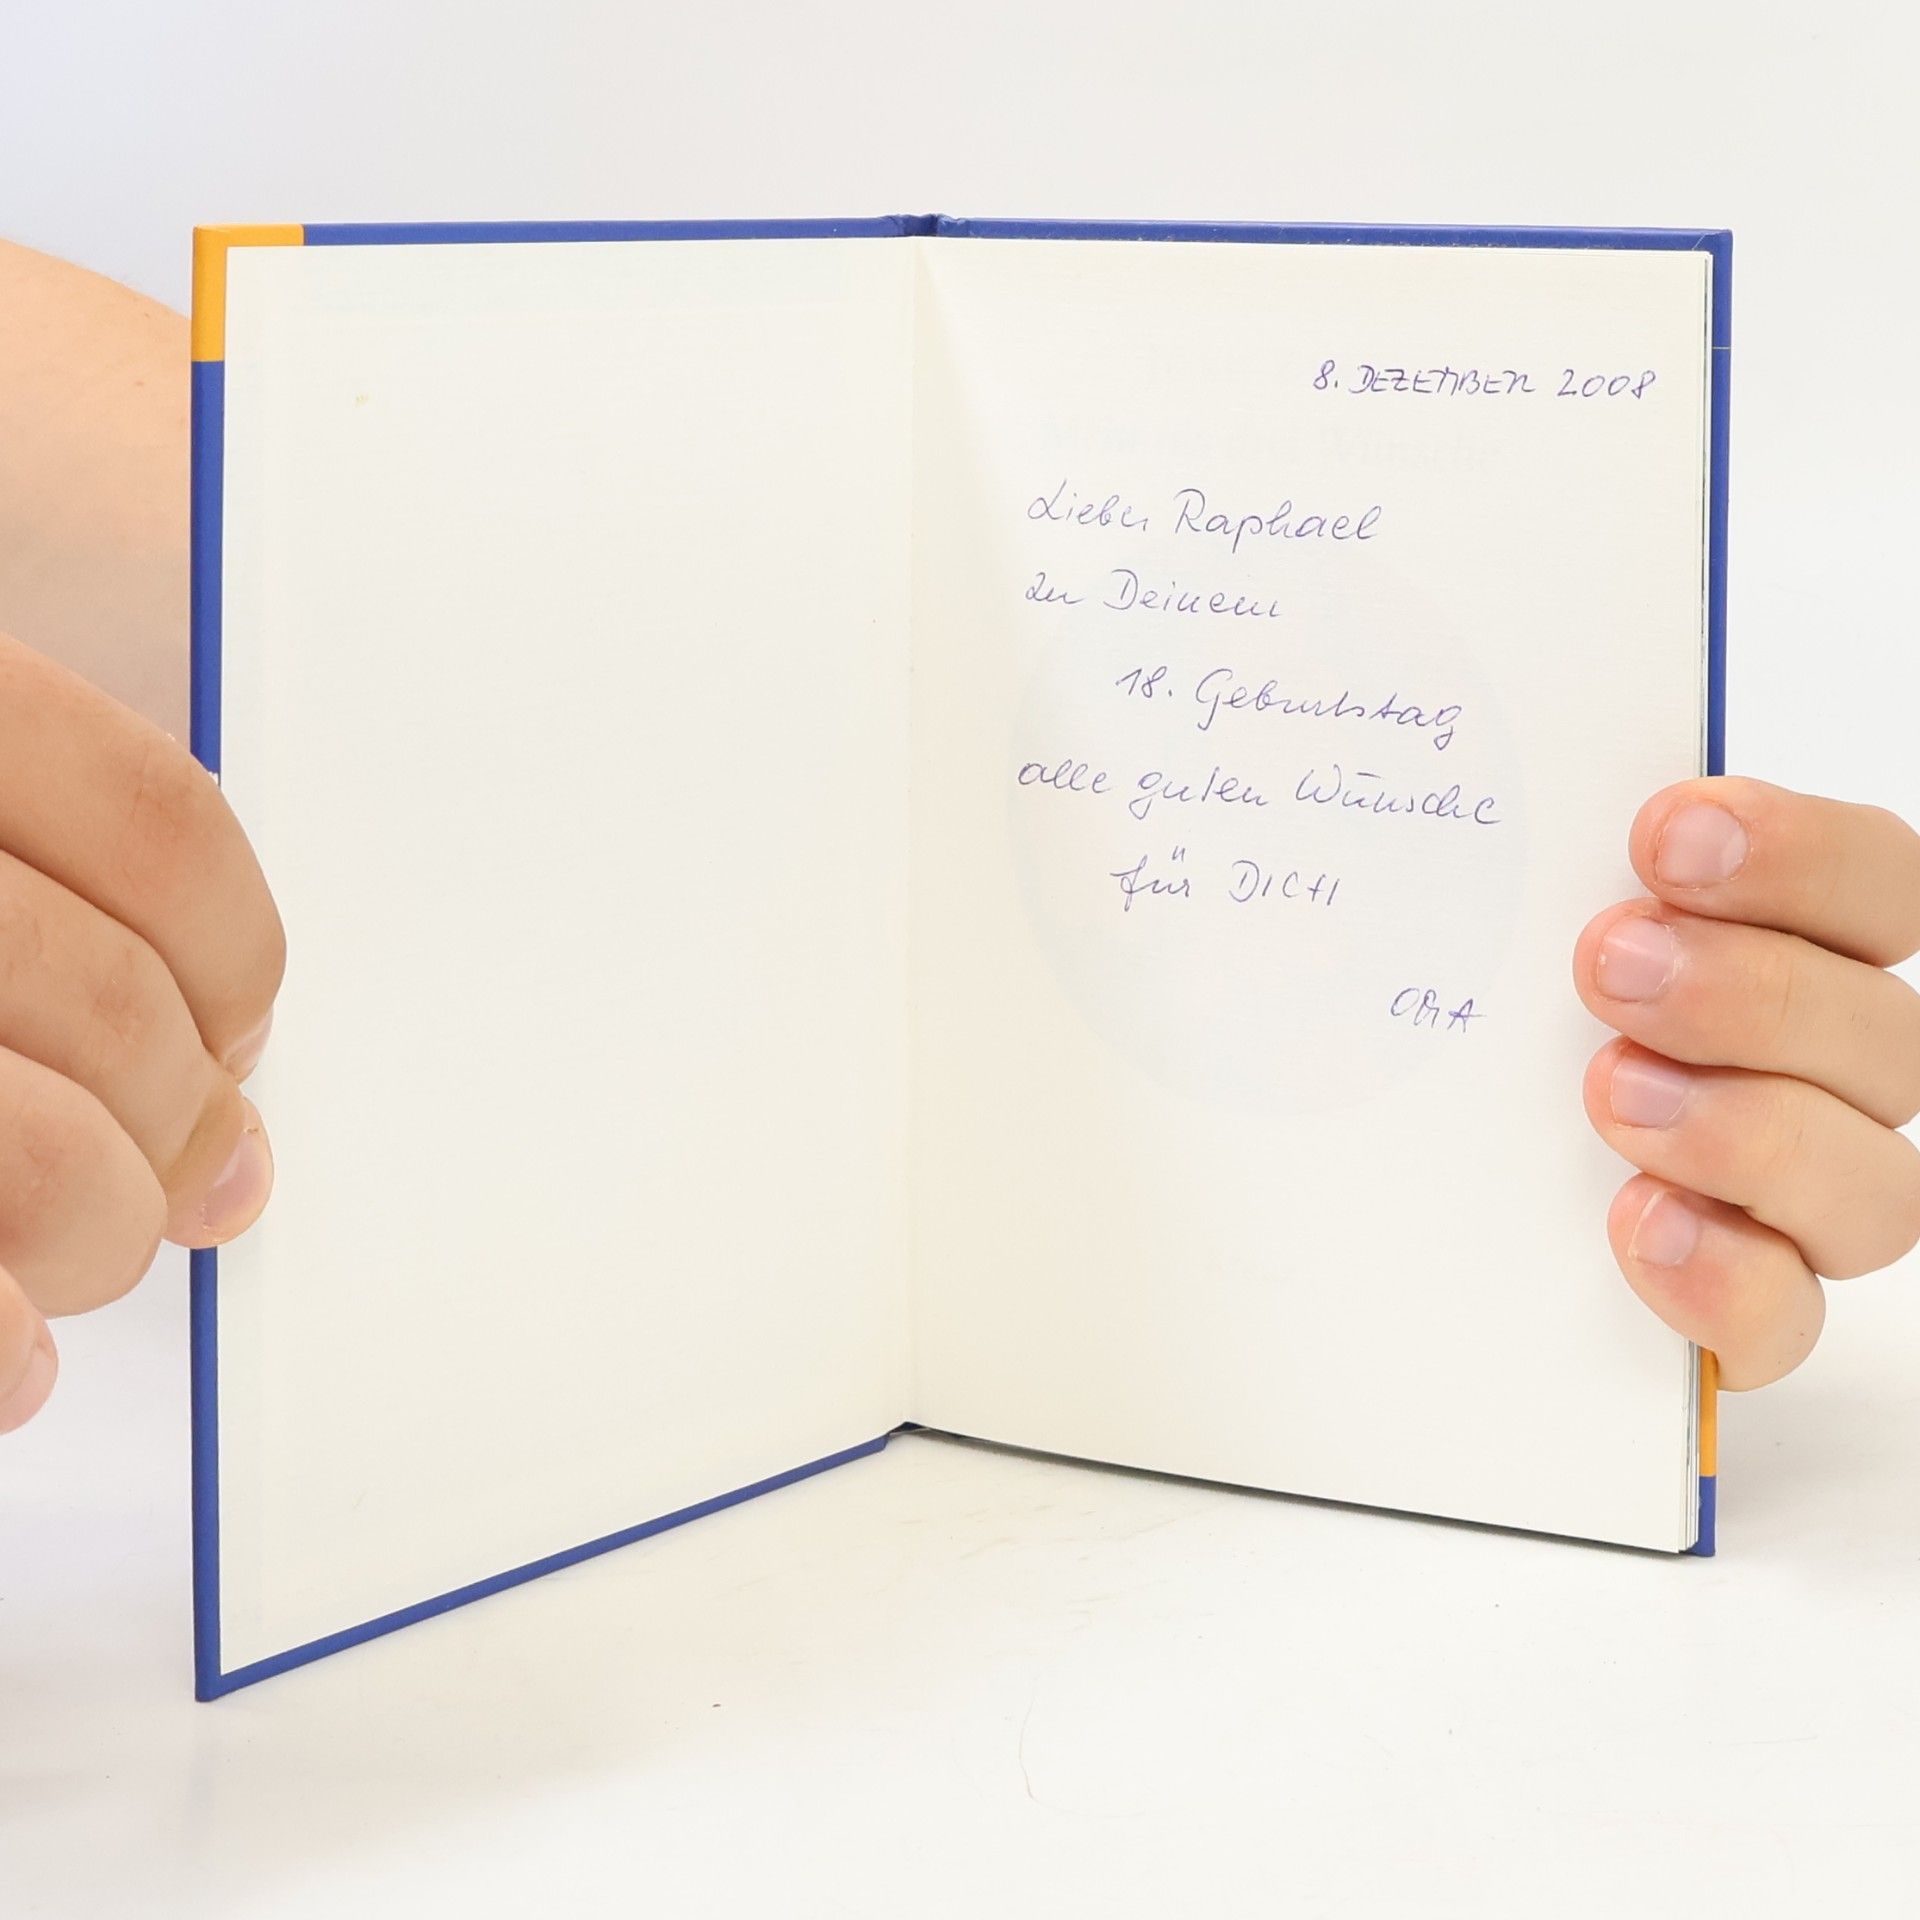 8. DEZEMBER 2008
Lieber Raphael
zu Deinem
18. Geburtstag
alle guten Wünsche
für DICH